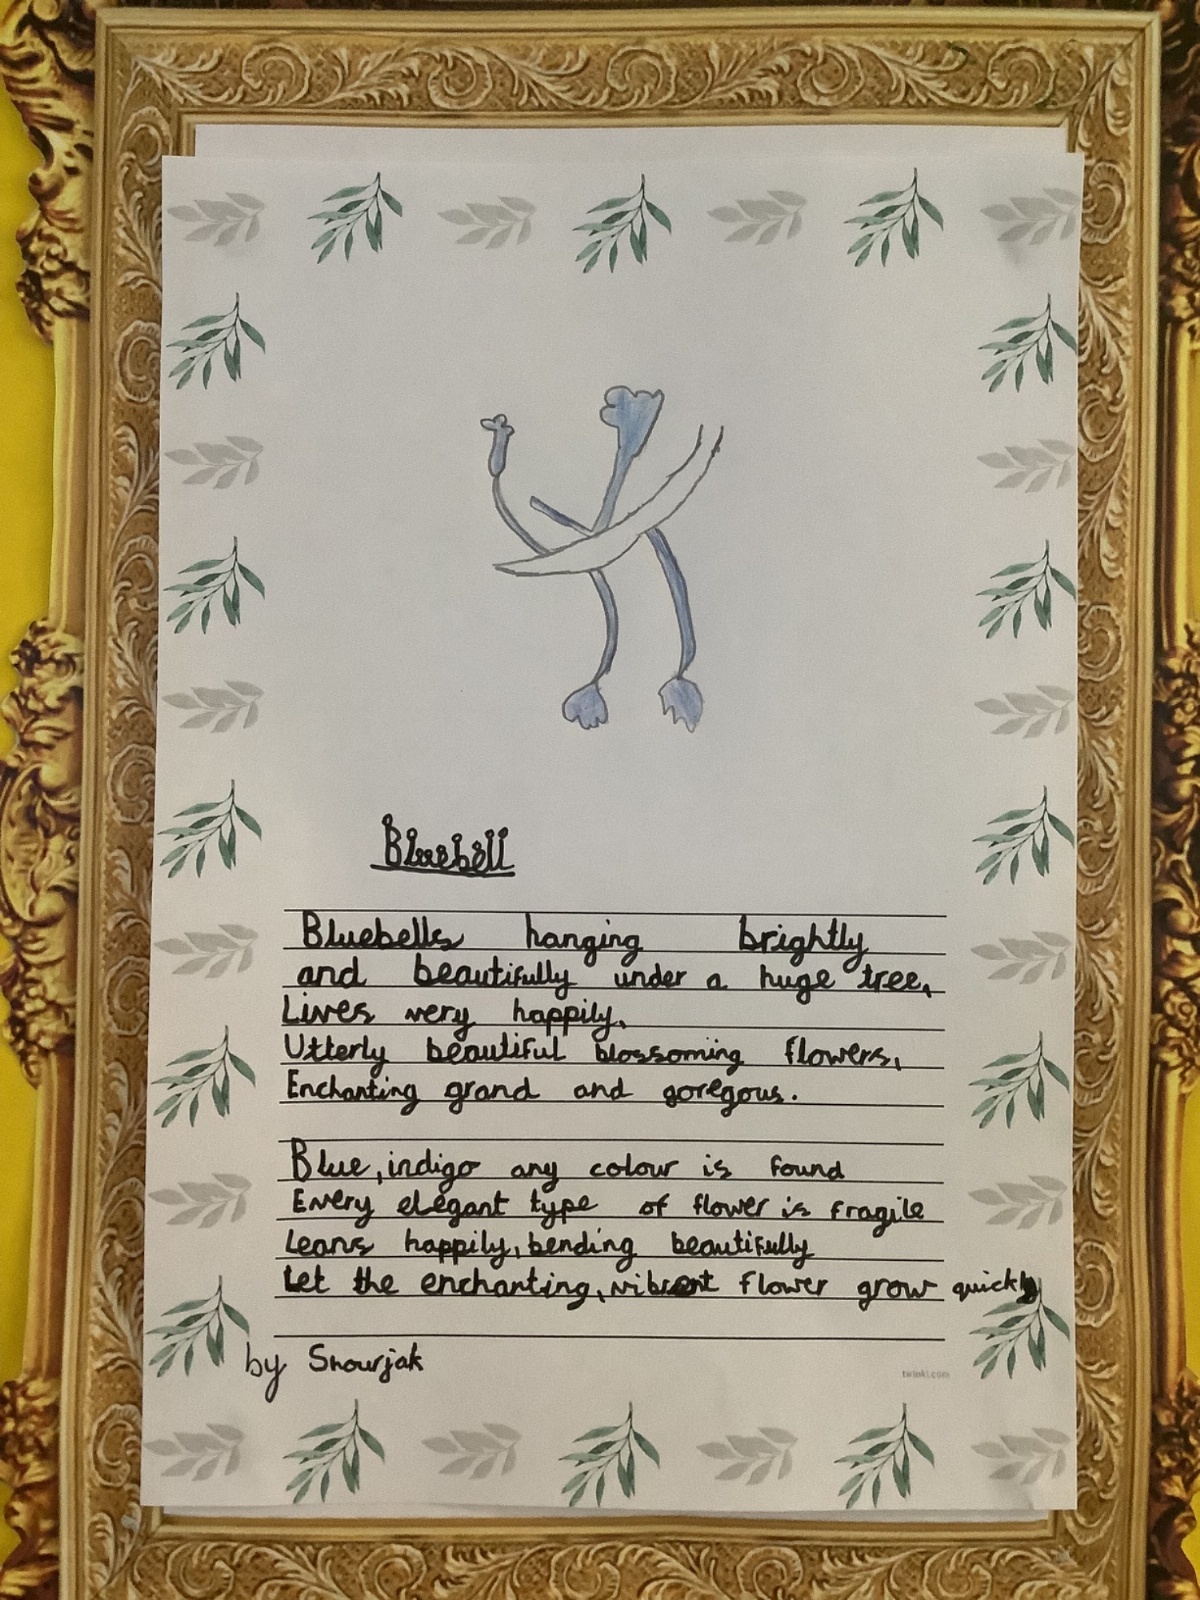 Bluebell
Bluebells hanging brightly
and beautifully under a huge tree,
Lives very happily,
Utterly beautiful blossoming flowers,
Enchanting grand and goregous.
Blue, indigo any colour is found
Every elegant type of flower is fragile
Leans happily, bending beautifully
Let the enchanting, vibrent flower grow quickly
by Shourjak
twinkl.com